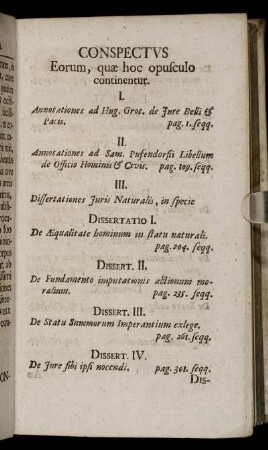 CONSPECTVS
Eorum, quæ hoc opusculo
continentur.
I.
Annotationes ad Hug. Grot. de Jure Belli &
Pacis. pag. 1. seqq.
II.
Annotationes ad Sam. Pufendorfii Libellum
de Officio Hominis & Civis. pag. 109. seqq.
III.
Dissertationes Juris Naturalis, in specie
DISSERTATIO I.
De Æqualitate hominum in statu naturali.
pag. 204. seqq.
DISSERT. II.
De Fundamento imputationis actionum mo-
ralium. pag. 235. seqq.
DISSERT. III.
De Statu Summorum Imperantium exlege.
pag. 261. seqq.
DISSERT. IV.
De Jure sibi ipsi nocendi. pag. 301. seqq.
DIS-